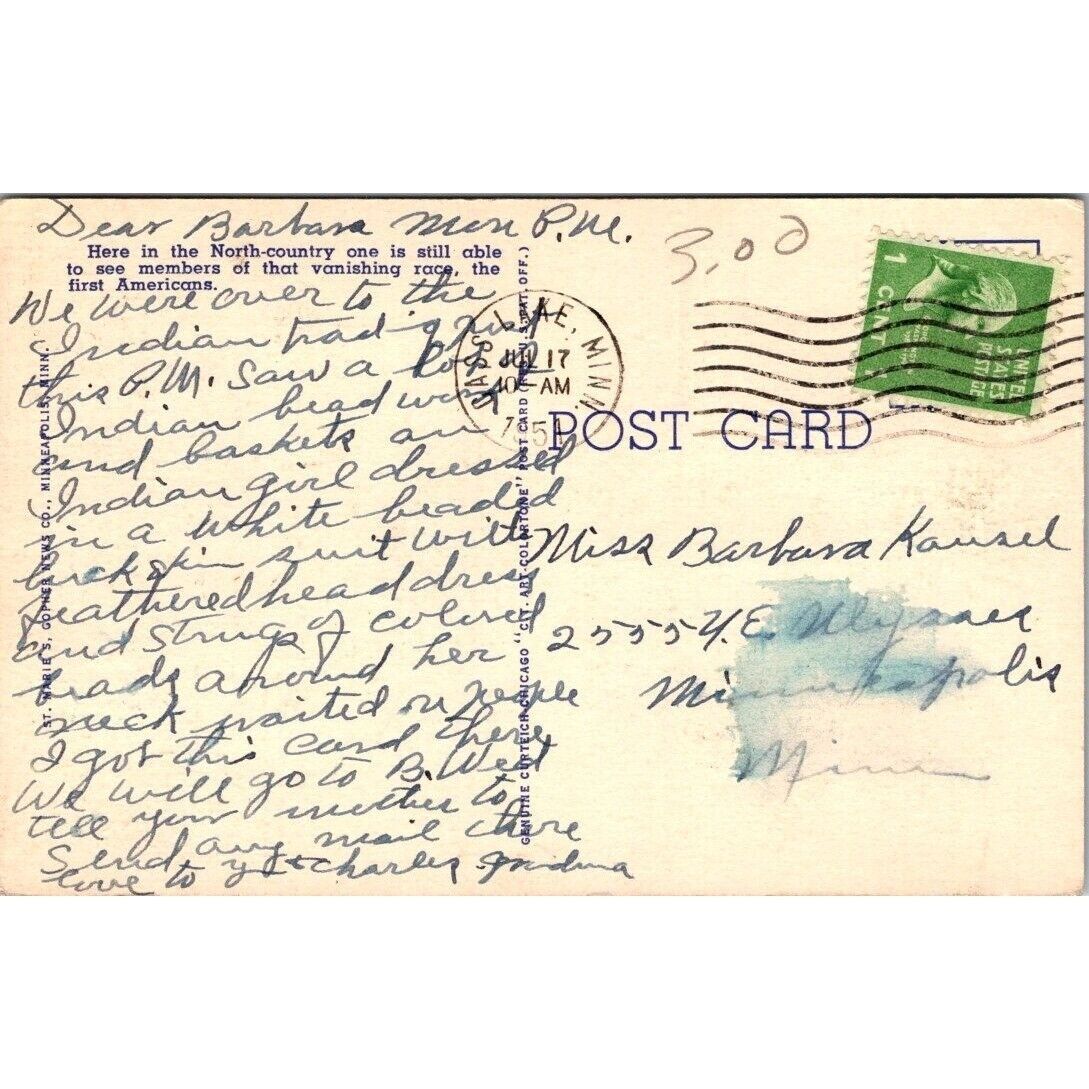 Dear Barbara Mon P.M.
Here in the North-country one is still able
to see members of that vanishing race, the
first Americans.
We were over to the
Indian trading post
this P.M. Saw a lot of
Indian bead work
and baskets an
Indian girl dressed
in a white beaded
buckskin suit with
feathered head dress
and strings of colored
beads around her
neck waited on people
I got this card there
We will go to B. Wed
tell your mother to
Send any mail there
love to y & Charles Grandma
ST. MARIE'S GOPHER NEWS CO., MINNEAPOLIS, MINN.
GENUINE CURTEICH-CHICAGO "C.T. ART-COLORTONE" POST CARD (REG. U.S. PAT. OFF.)
3.00
CASS LAKE, MINN.
JUL 17
10 AM
1951
1 CENT
UNITED
STATES
POSTAGE
POST CARD
Miss Barbara Kausel
2555 N.E. Ulysses
Minneapolis
Minn